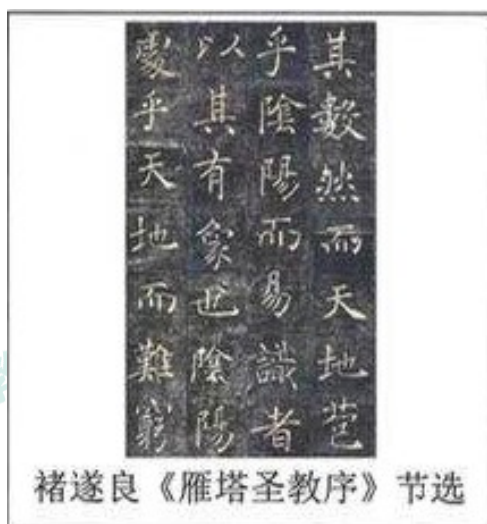 其數然而天地苞
乎陰陽而易識者
以其有象也陰陽
處乎天地而難窮
褚遂良《雁塔圣教序》节选